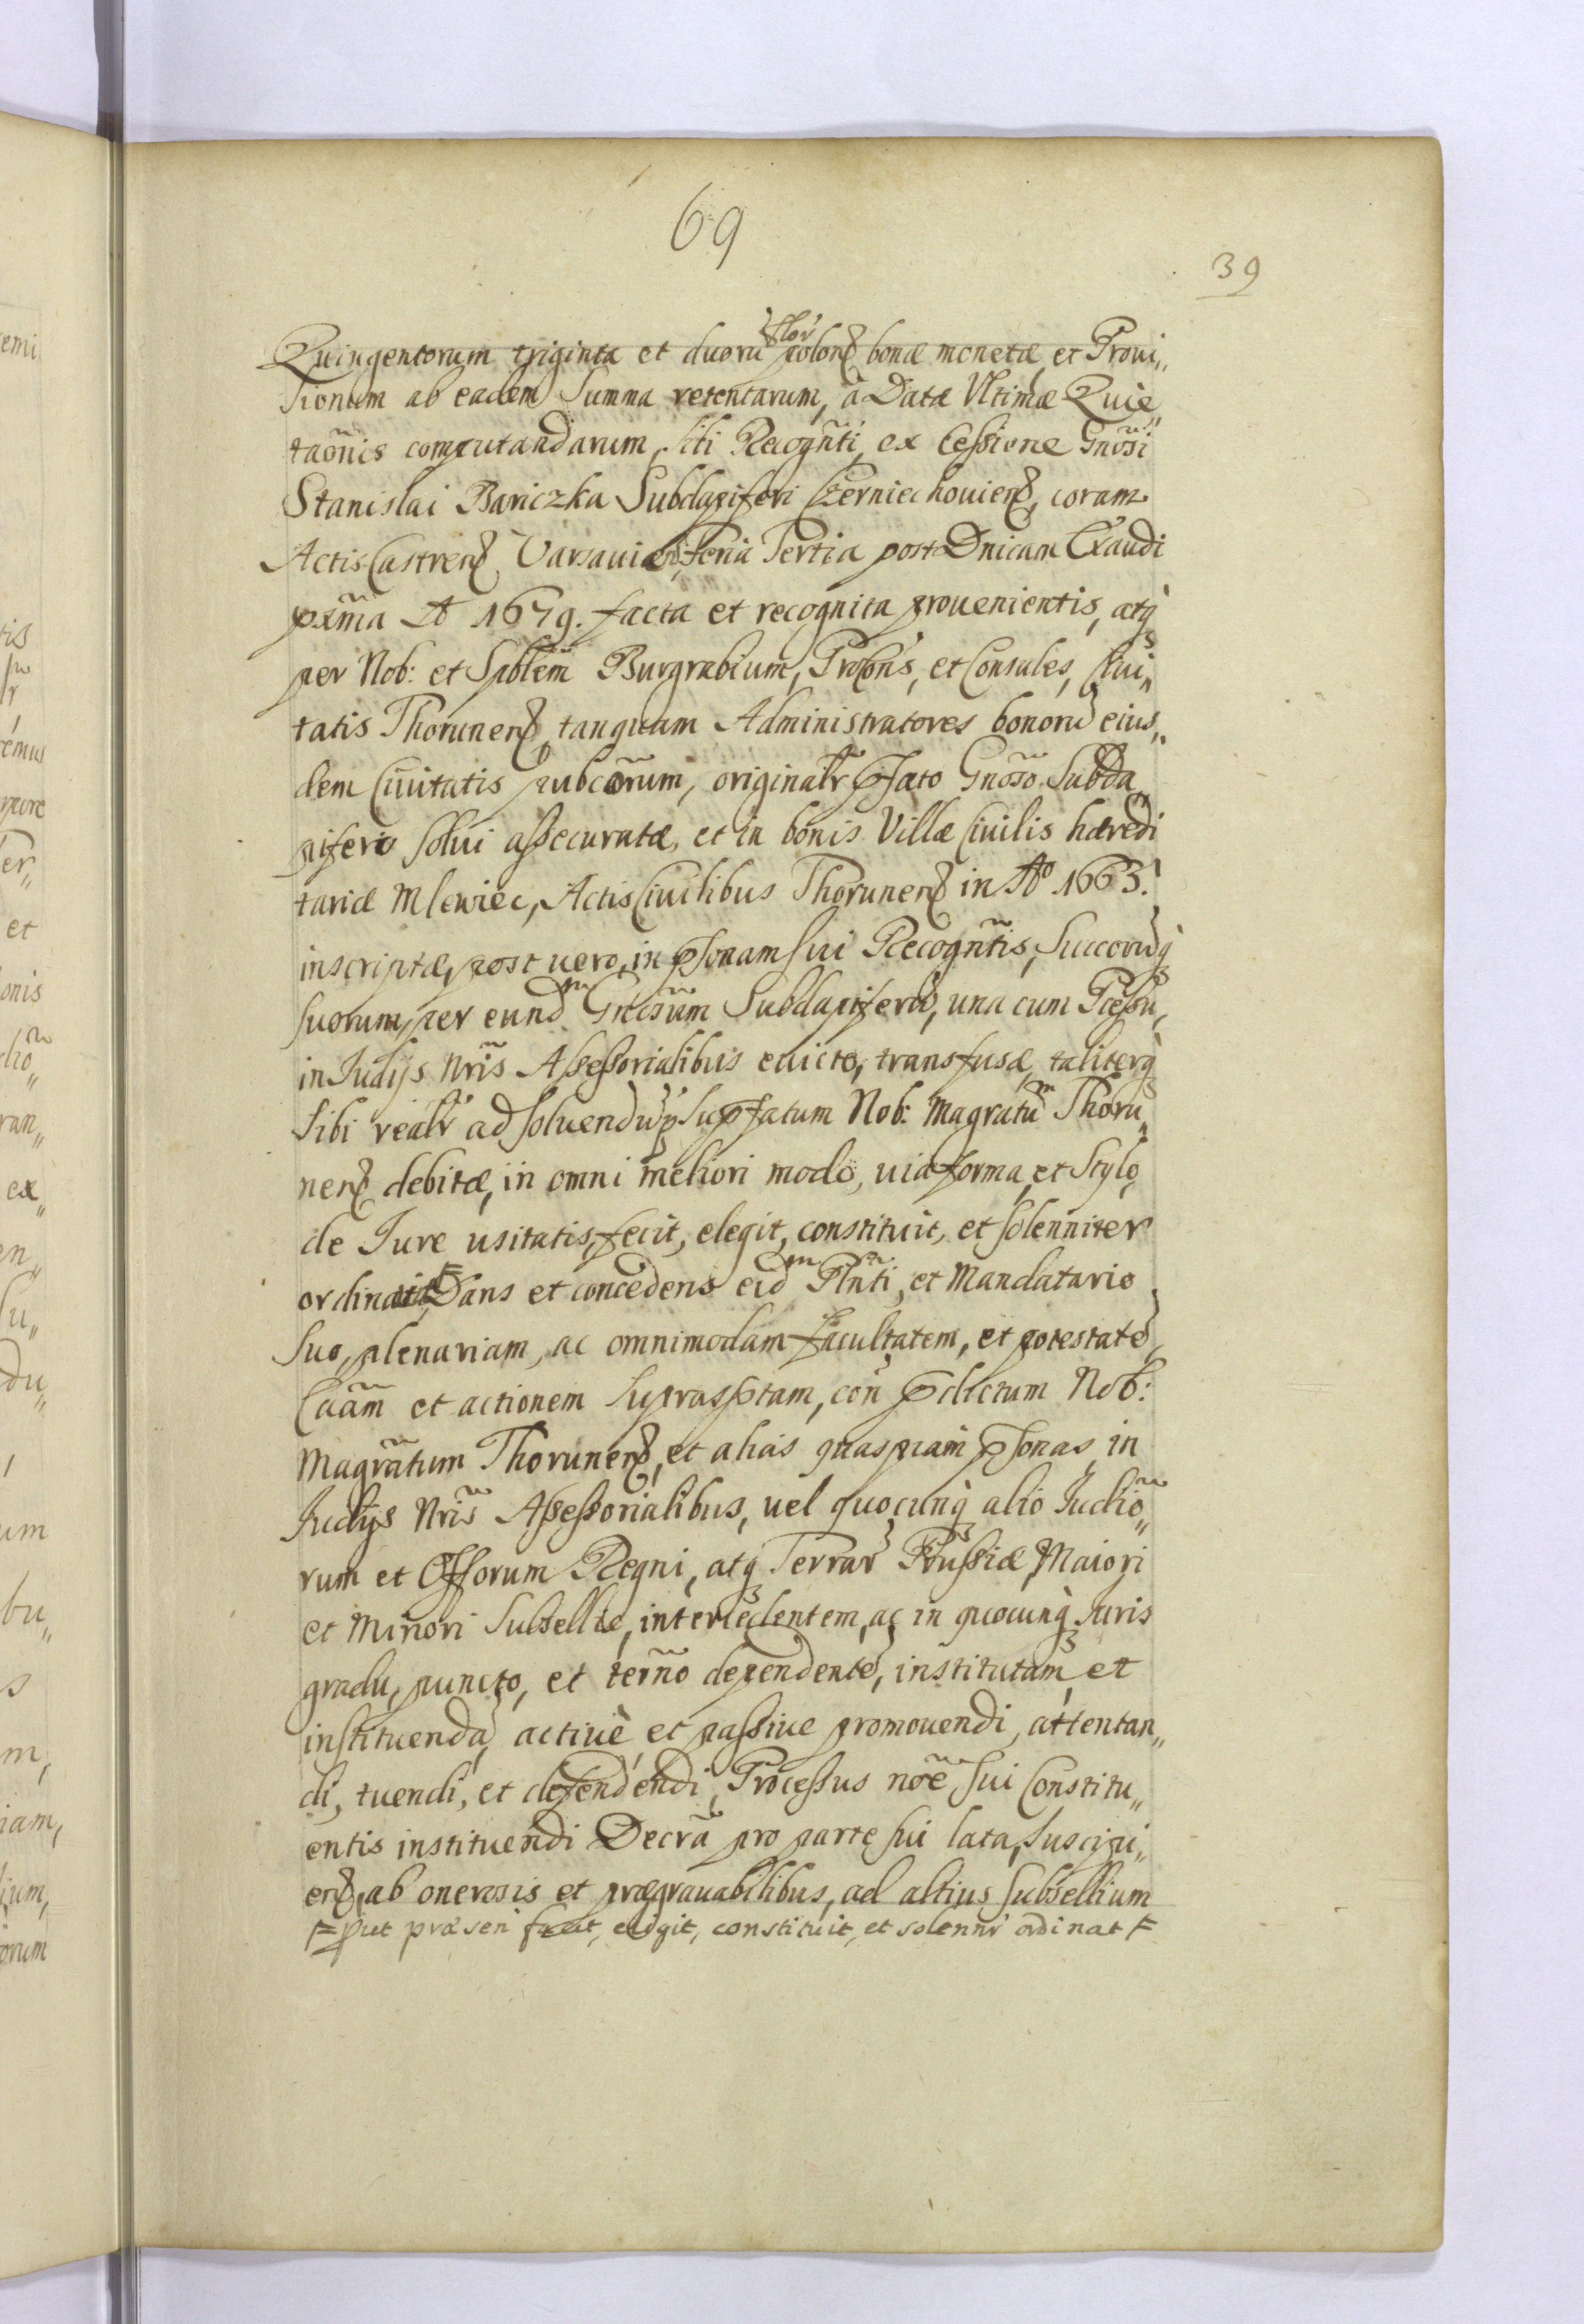 69
39
Quingentorum triginta et duorũ flor polonẽ bonæ monetæ et Proui„
sionum ab eadem Summa retentarum, à Data Vltimæ Quie„
taõnis computandarum, sibi Recognñti, ex Cessione Gnõsi
Stanislai Bariczka Subdapiferi Czerniechouien, coram
Actis Castren Varsauien, feria Tertia post Dnicam Exaudi
pxĩma Aº 1679. facta et recognita prouenientis, atq3
per Nob: et Spblẽm Burgrabium, Procons, et Consules, Ciui„
tatis Thorunen, tanquam Administratores bonorũ eius„
dem Ciuitatis pubcõrum, originalr pfato Gnõso Subda„
pifero solui assecuratæ, et in bonis Villæ Ciuilis hæredi
tariæ Mlewiec, Actis Ciuilibus Thorunen in Aº 1663.
inscriptæ, post uero in psonam sui Recognñtis, Succorũq3
suorum, per eundm Gnõsum Subdapiferũ, una cum Pcessu,
in Judijs Nrĩs Assessorialibus euicto, transfusæ, taliterq3
sibi realr ad soluendũ p supfatum Nob: Magratũm Thoru„
nen debitæ, in omni meliori modo, uia forma, et Stylo,
de Jure usitatis, fecit, elegit, constituit, et solenniter
ordinauit, Dans et concedens eidm Plñti, et Mandatario
suo, plenariam, ac omnimodam facultatem, et potestatẽ,
Caãm et actionem suprasptam, con pdictum Nob:
Magrãtum Thorunen, et alias quaspiam psonas, in
Judijs Nrĩs Assessorialibus, uel quocunq3 alio Judiõ„
rum et Offorum Regni, atq3 Terrar Prussiæ, Maiori
et Minori Subsellio, intercedentem, ac in quocunq3 Juris
gradu, puncto, et termño dependentẽ, institutam, et
instituendã actiuè et passiue promouendi, attentan„
di, tuendi, et defendendi, Processus nõe sui Constitu„
entis instituendi Decrã pro parte sui lata, suscipi„
en, ab onerosis et prægrauabilibus, ad altius Subsellium
put præsen facit, eligit, constituit, et solennr ordinat